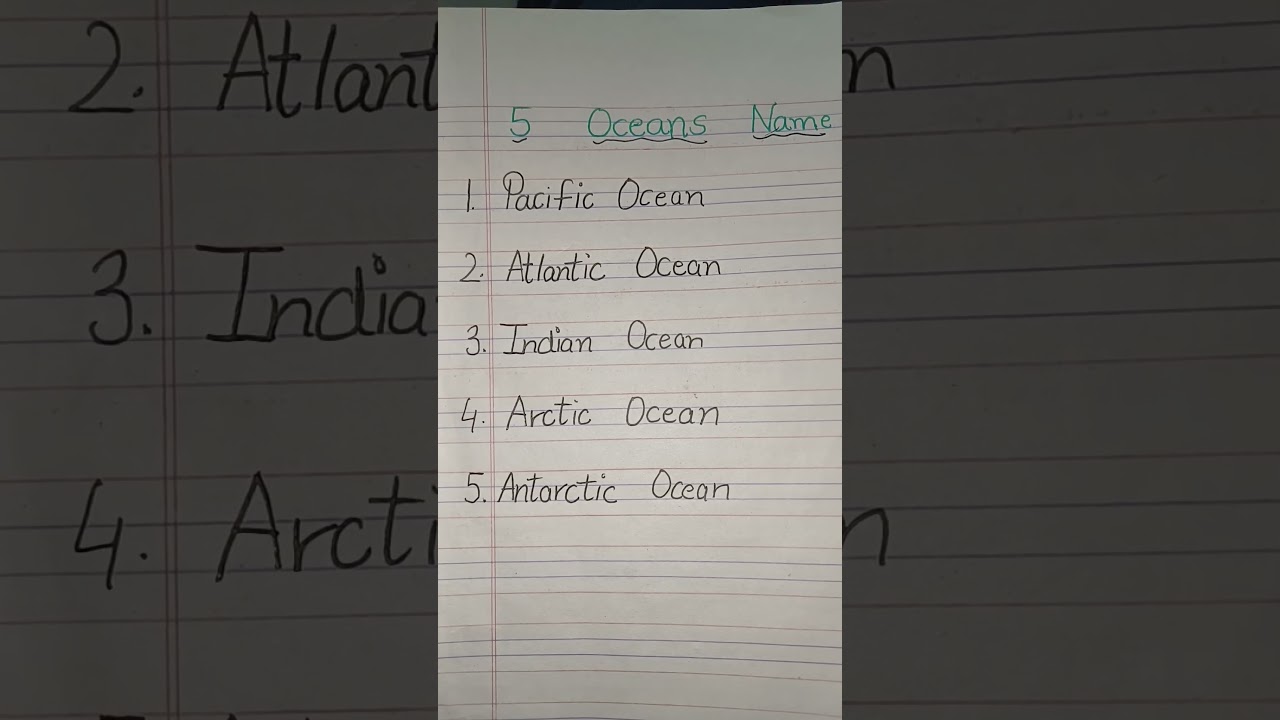 5 Oceans Name
1. Pacific Ocean
2. Atlantic Ocean
3. Indian Ocean
4. Arctic Ocean
5. Antarctic Ocean